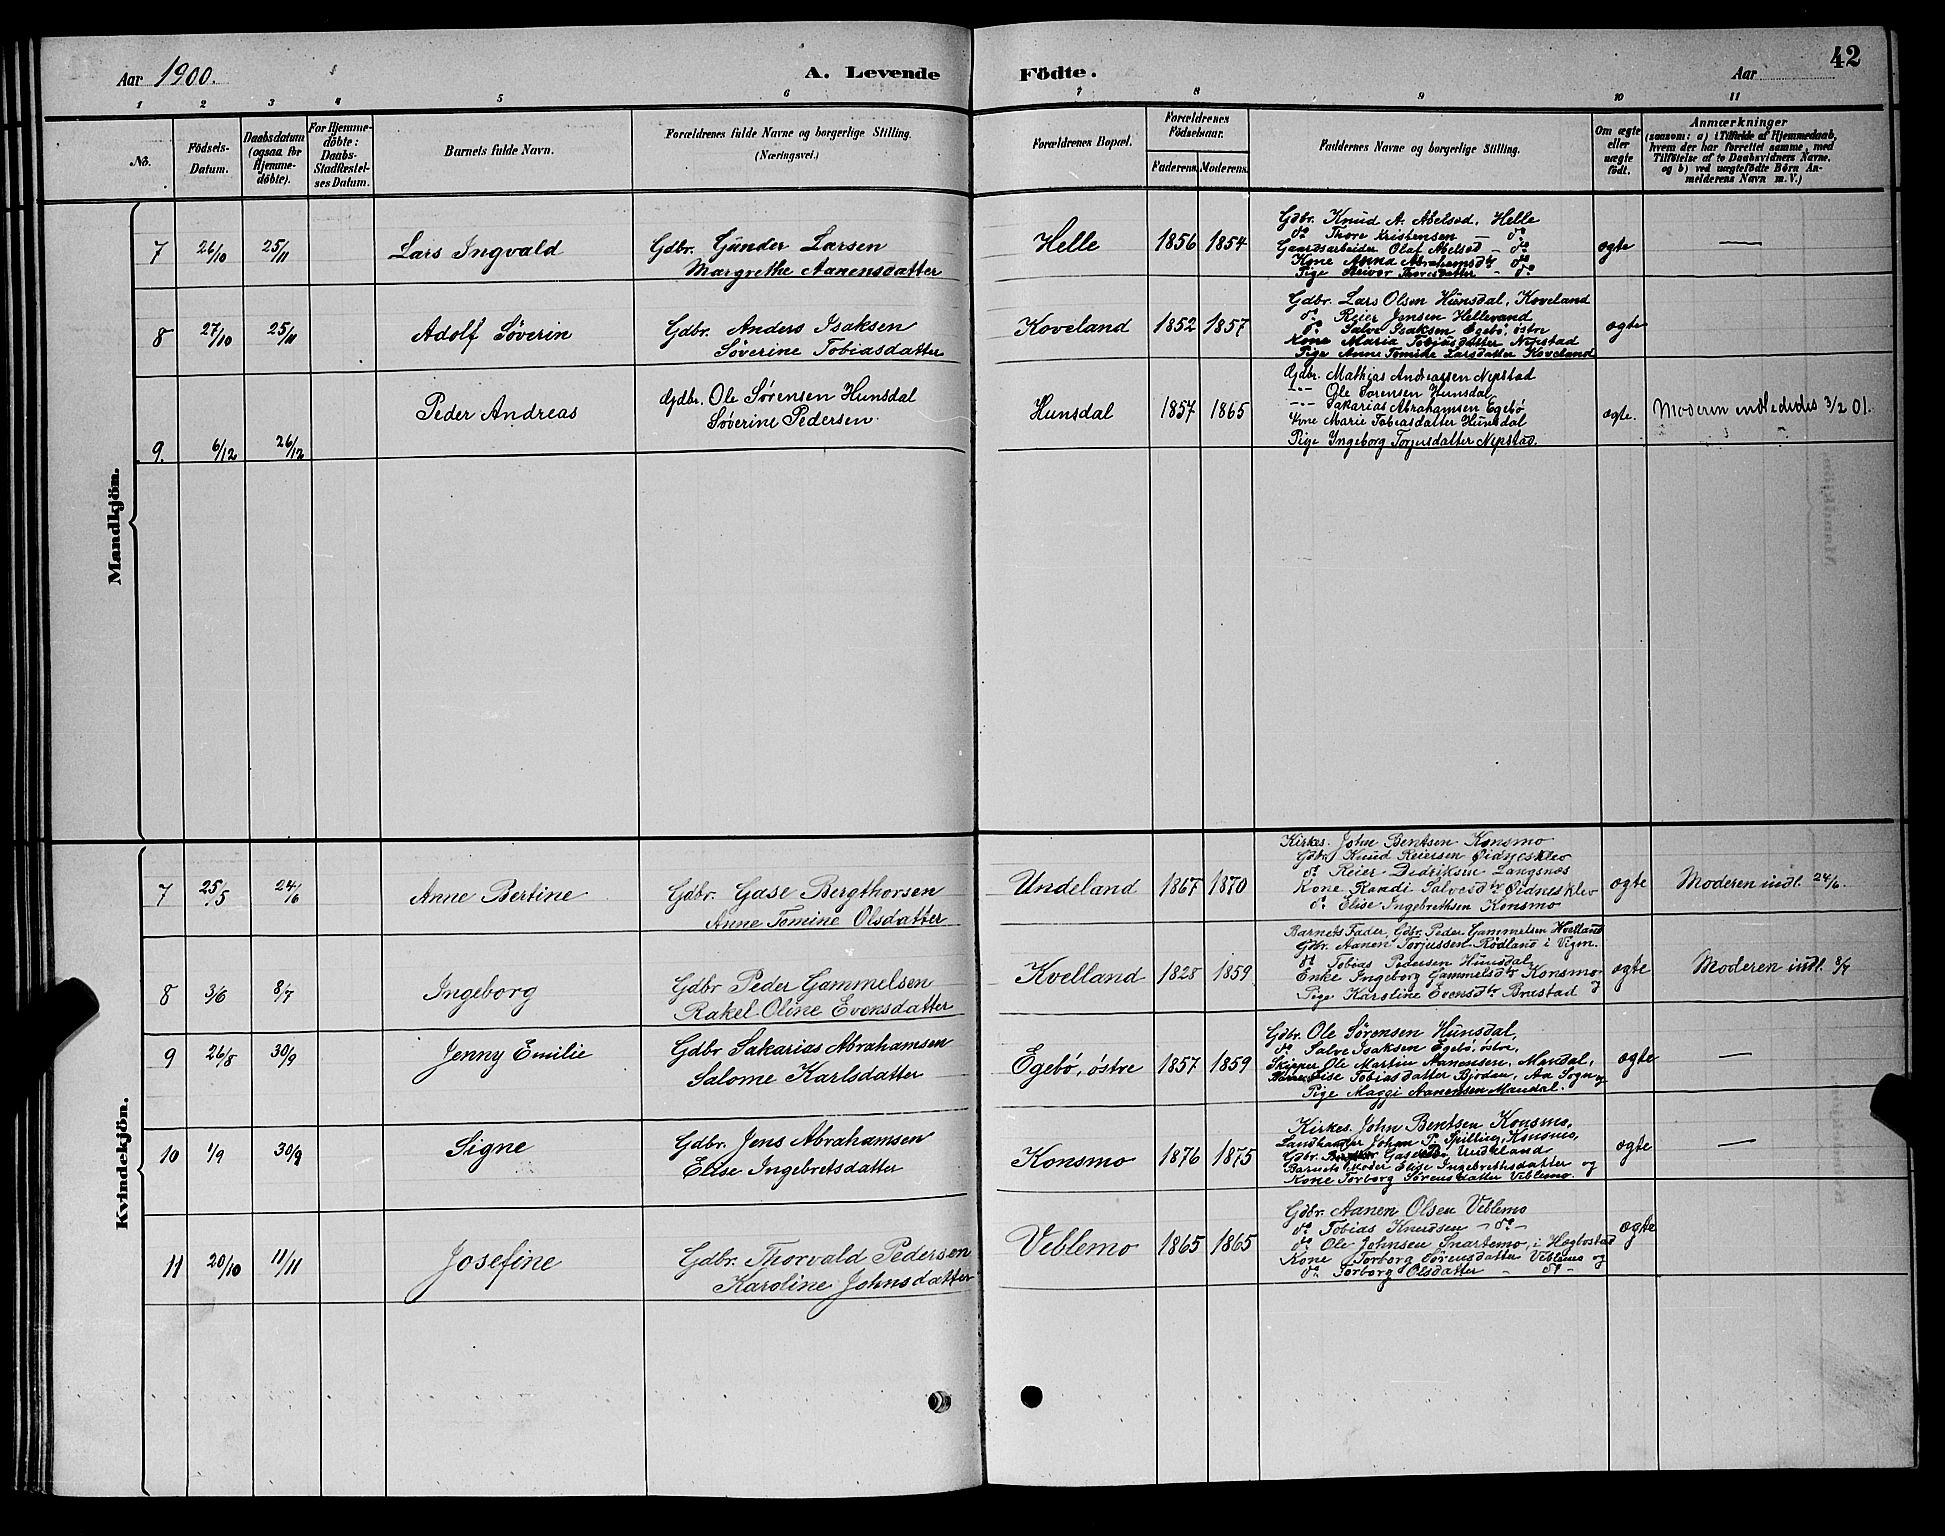 42
Aar 1900.
A. Levende
Födte.
Aar
1 2 3 4 5 6 7 8 9 10 11
No.
Födsels-
Datum.
Daabsdatum
(ogsaa for
Hjemme-
döbte).
For Hjemme-
döbte:
Daabs-
Stadfæstel-
ses Datum.
Barnets fulde Navn.
Forældrenes fulde Navne og borgerlige Stilling.
(Næringsvei.)
Forældrenes Bopæl.
Forældrenes
Födselsaar.
Faderens. Moderens.
Faddernes Navne og borgerlige Stilling.
Om ægte
eller
uægte
födt.
Anmærkninger
(saasom: a) i Tilfælde af Hjemmedaab,
hvem der har forrettet samme, med
Tilföielse af to Daabsvidners Navne,
og b) ved uægtefödte Börn An-
melderens Navn m. V.)
Mandkjön.
7 26/10 25/11 Lars Ingvald
Gdbr. Gunder Larsen
Margrethe Aanensdatter
Helle 1856 1854
Gdbr. Knud A. Abelsød, Helle
do Thore Kristensen — do
Gaardsarbeider Olaf Abelsød - do
Kone Anna Abrahamsdtr do
Pige Thoresdatter - do
ægte —
8 27/10 25/11 Adolf Søverin
Gdbr. Anders Isaksen
Søverine Tobiasdatter
Koveland 1852 1857
Gdbr. Lars Olsen Hunsdal, Koveland
do Reier Jensen Hellevand
do Salve Isaksen Egebø, østre
Kone Maria Tobiasdatter Nepstad
Pige Anne Tomine Larsdatter Koveland
ægte
9. 6/12 26/12 Peder Andreas
Gdbr. Ole Sørensen Hunsdal
Søverine Pedersen
Hunsdal 1857 1865
Gdbr. Mathias Andreassen Nepstad
-"- Ole Sørensen Hunsdal
-"- Sakarias Abrahamsen Egebø
Kone Marie Tobiasdatter Hunsdal
Pige Ingeborg Torjusdatter Nepstad.
ægte. Moderen indlededes 3/2 01.
Kvindekjön.
7 25/5 24/6 Anne Bertine
Gdbr. Gase Bergthorsen
Anne Tomine Olsdatter
Undeland 1867 1870
Kirkes. John Bentsen Konsmo
Gdbr. Knud Reiersen Øidnesklev
do Reier Didriksen Langsnes
Kone Randi Salvesdtr Øidnesklev
do Elise Ingebrethsen Konsmo
ægte Moderen indl. 24/6.
8 3/6 8/7 Ingeborg
Gdbr Peder Gammelsen
Rakel Oline Evensdatter
Kvelland 1828 1859
Barnets Fader, Gdbr. Peder Gammelsen Kvelland
Gdbr. Aanen Torjussen Rødland i Vigm.
do Tobias Pedersen Hunsdal
Enke Ingeborg Gammelsdtr Konsmo
Pige Karoline Evensdtr Brustad
ægte Moderen indl. 8/7
9 26/8 30/9 Jenny Emilie
Gdbr Sakarias Abrahamsen
Salome Karlsdatter
Egebø, østre 1857 1859
Gdbr. Ole Sørensen Hunsdal,
do Salve Isaksen Egebø, østre,
Skipper Ole Martin Aanensen, Mandal,
Tobiasdatter Bjoden, Aa Sogn og
Pige Maggi Aanensen Mandal.
ægte —
10 4/9 30/9 Signe
Gdbr. Jens Abrahamsen
Elise Ingebretsdatter
Konsmo 1876 1875
Kirkes. John Bentsen Konsmo,
Landhandler Johan P. Spilling, Konsmo,
Gdbr. Gase Undeland
Barnets Moder Elise Ingebrethsdatter og
Kone Torborg Sørensdatter Veblemo.
ægte —
11 20/10 11/11 Josefine
Gdbr. Thorvald Pedersen
Karoline Johnsdatter
Veblemo 1865 1865
Gdbr. Aanen Olsen Veblemo
do Tobias Knudsen - do -
do Ole Johnsen Snartemo, i Hægbostad
Kone Torborg Sørensdatter Veblemo og
do Torborg Olsdatter - do -
ægte